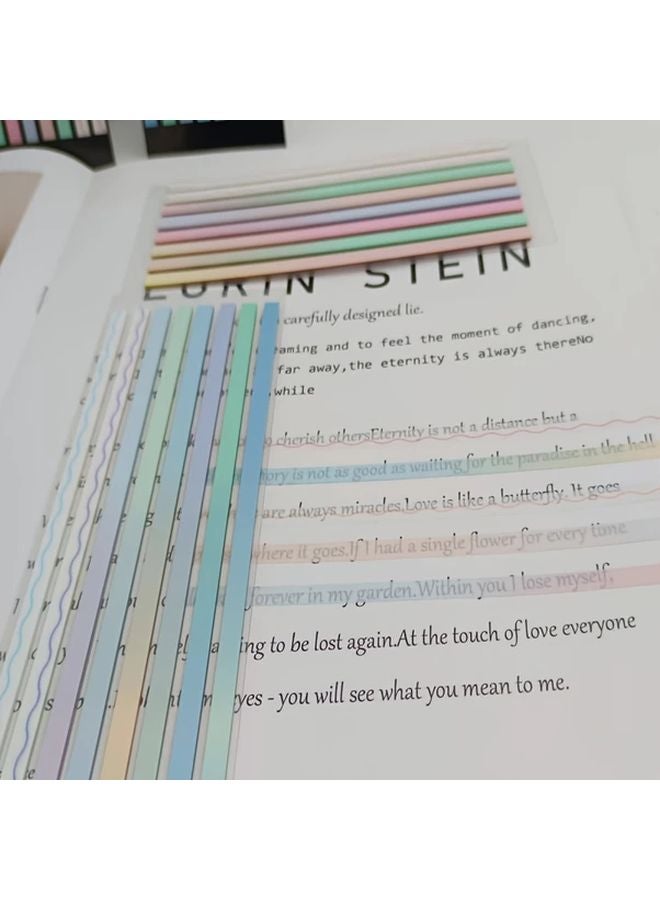 STEIN
carefully designed lie.
aming and to feel the moment of dancing,
far away,the eternity is always thereNo
while
cherish othersEternity is not a distance but a
ory is not as good as waiting for the paradise in the hell
are always miracles.Love is like a butterfly. It goes
where it goes.If I had a single flower for every time
forever in my garden.Within you I lose myself,
ing to be lost again.At the touch of love everyone
yes - you will see what you mean to me.